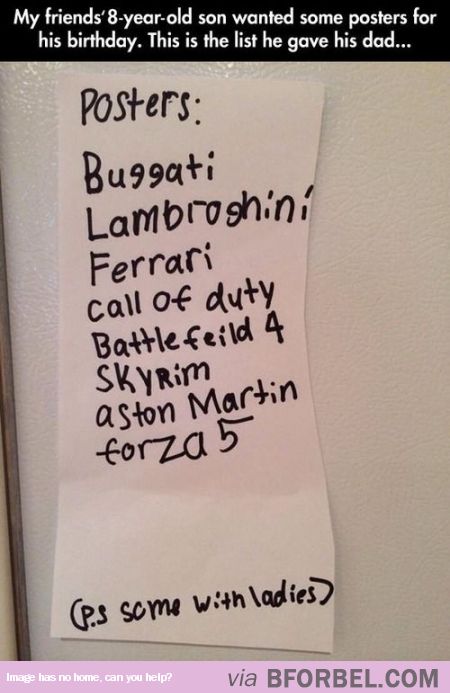 My friends' 8-year-old son wanted some posters for
his birthday. This is the list he gave his dad...
Posters:
Buggati
Lambroghini
Ferrari
call of duty
Battlefeild 4
SKYRim
aston Martin
forza 5
(P.S some with ladies)
Image has no home, can you help?
via BFORBEL.COM